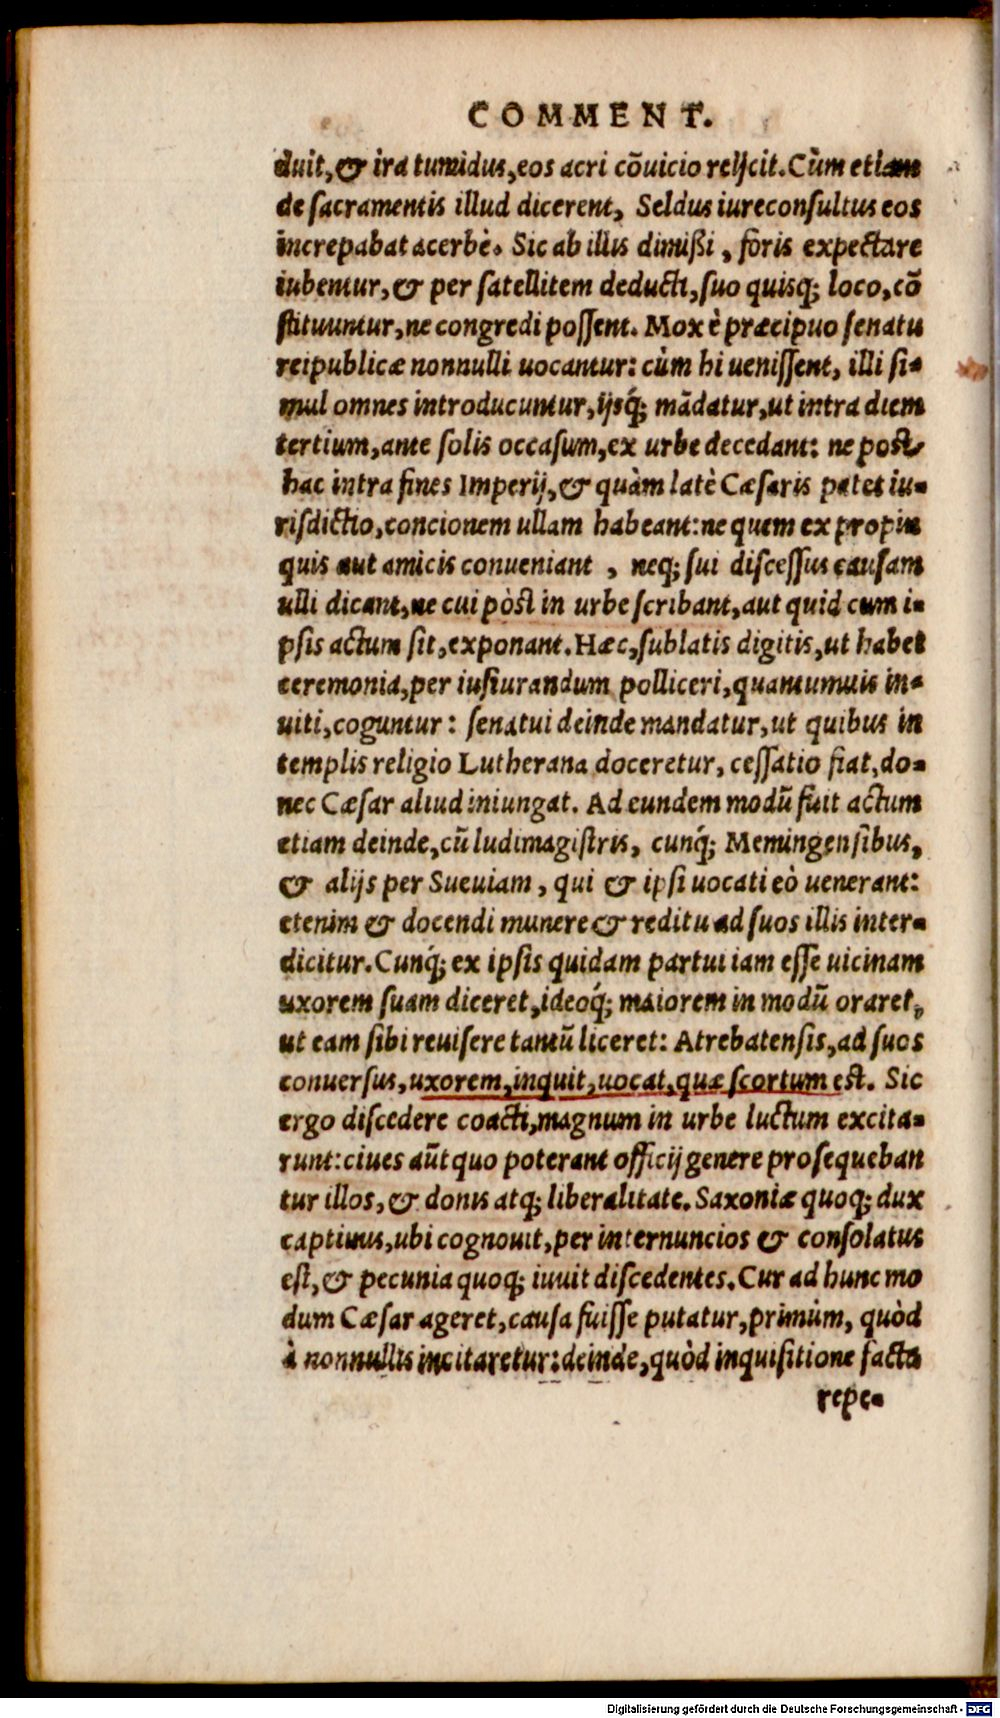 COMMENT.
duit, & ira tumidus, eos acri cõuicio reijcit. Cùm etiam
de sacramentis illud dicerent, Seldus iureconsultus eos
increpabat acerbè. Sic ab illis dimißi, foris expectare
iubentur, & per satellitem deducti, suo quisq; loco, cõ
stituuntur, ne congredi possent. Mox è præcipuo senatu
reipublicæ nonnulli uocantur: cùm hi uenissent, illi si-
mul omnes introducuntur, ijsq́; mãdatur, ut intra diem
tertium, ante solis occasum, ex urbe decedant: ne post
hac intra fines Imperij, & quàm latè Cæsaris patet iu-
risdictio, concionem ullam habeant: ne quem ex propin
quis aut amicis conueniant, neq; sui discessus causam
ulli dicant, ne cui pòst in urbe scribant, aut quid cum i-
psis actum sit, exponant. Hæc, sublatis digitis, ut habet
ceremonia, per iusiurandum polliceri, quantumuis in-
uiti, coguntur: senatui deinde mandatur, ut quibus in
templis religio Lutherana doceretur, cessatio fiat, do-
nec Cæsar aliud iniungat. Ad eundem modũ fuit actum
etiam deinde, cũ ludimagistris, cunq́; Memingensibus,
& alijs per Sueuiam, qui & ipsi uocati eò uenerant:
etenim & docendi munere & reditu ad suos illis inter-
dicitur. Cunq́; ex ipsis quidam partui iam esse uicinam
uxorem suam diceret, ideoq́; maiorem in modũ oraret,
ut eam sibi reuisere tantũ liceret: Atrebatensis, ad suos
conuersus, uxorem, inquit, uocat, quæ scortum est. Sic
ergo discedere coacti, magnum in urbe luctum excita-
runt: ciues aũt quo poterant officij genere prosequeban
tur illos, & donis atq; liberalitate. Saxoniæ quoq; dux
captiuus, ubi cognouit, per internuncios & consolatus
est, & pecunia quoq; iuuit discedentes. Cur ad hunc mo
dum Cæsar ageret, causa fuisse putatur, primùm, quòd
à nonnullis incitaretur: deinde, quòd inquisitione facta
repe-
Digitalisierung gefördert durch die Deutsche Forschungsgemeinschaft - DFG